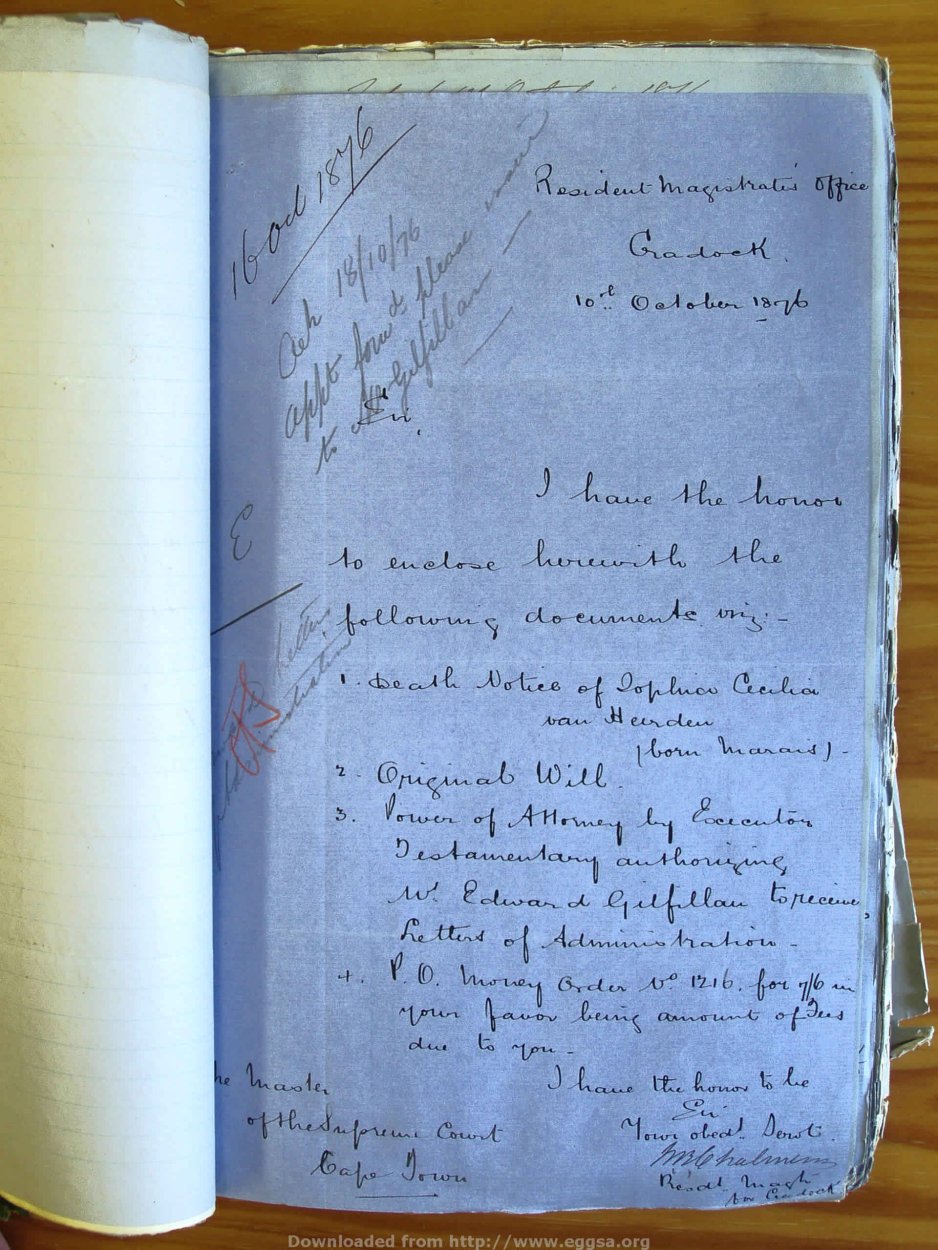 16 Oct 1876
Ack 18/10/76
appt forw'd please
to Mr Gilfillan
Resident Magistrate's Office
Cradock.
10th October 1876
Sir,
I have the honor
to enclose herewith the
following documents viz: -
E
Letters
Administration
1. Death Notice of Sophia Cecilia
van Heerden
(born Marais) -
2. Original Will.
3. Power of Attorney by Executor
Testamentary authorizing
Mr Edward Gilfillan to receive
Letters of Administration -
4. P. O. Money Order No 1216. for 7/6 in
your favor being amount of Fees
due to you -
I have the honor to be
Sir
Your obedt. Servt.
Chalmers
Resdt Magte
for Cradock
he Master
of the Supreme Court
Cape Town
Downloaded from http://www.eggsa.org